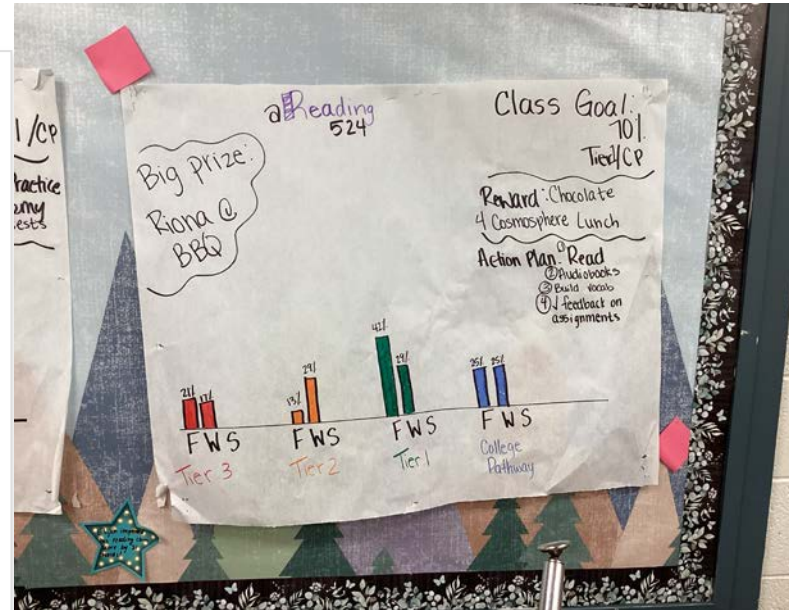 1/CP
ractice
emy
ests
aReading
524
Big prize:
Riona @
BBQ
Class Goal:
70%
Tier1/CP
Reward: Chocolate
4 Cosmosphere Lunch
Action Plan: ① Read
② Audiobooks
③ Build vocab
④ √ feedback on
assignments
21% 17%
13% 29%
42% 29%
25% 25%
F W S
F W S
F W S
F W S
Tier 3
Tier 2
Tier 1
College
Pathway